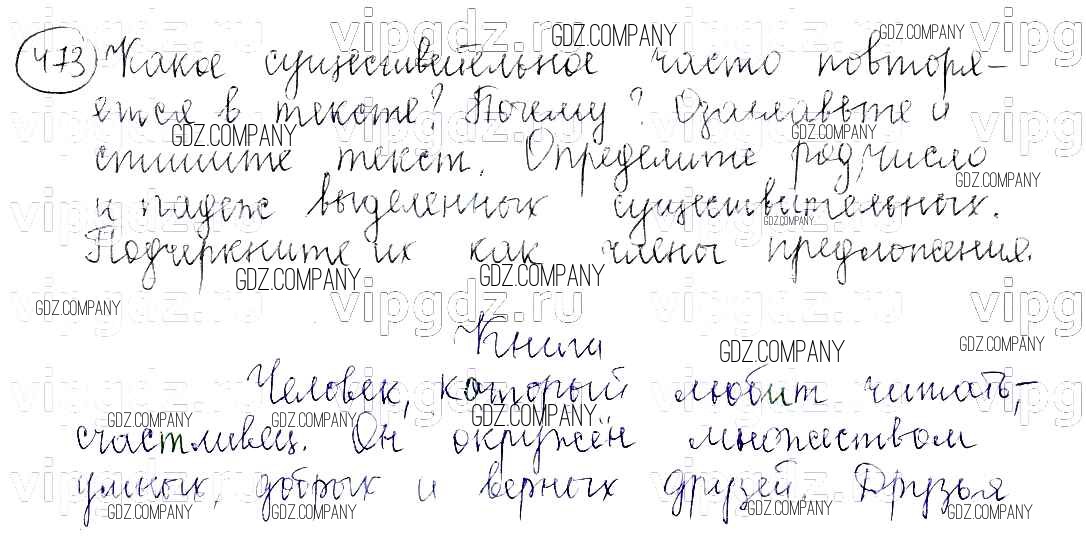 473 Какое существительное часто повторя-
ется в тексте? Почему? Озаглавьте и
спишите текст. Определите род, число
и падеж выделенных существительных.
Подчеркните их как члены предложения.
Книги
Человек, который любит читать, –
счастливец. Он окружён множеством
умных, добрых и верных друзей. Друзья